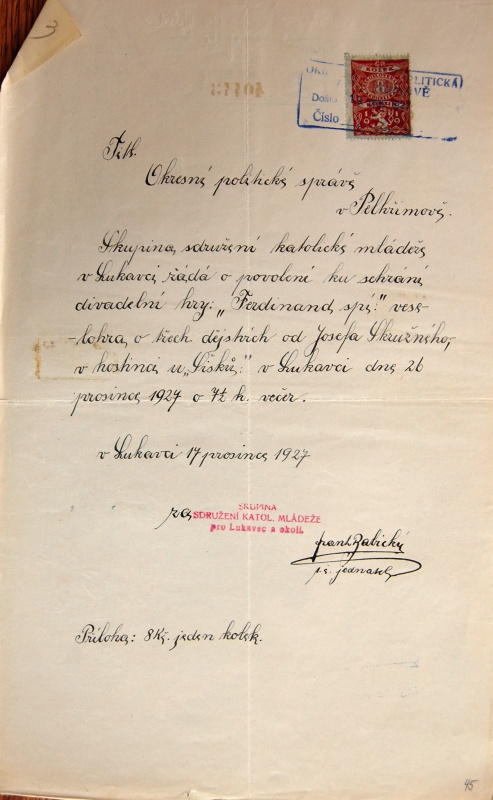 3
OKR POLITICKÁ
Došlo VĚ
Číslo
KOLEK
8
Titl.
Okresní politické správě
v Pelhřimově.
Skupina, sdružení katolické mládeže
v Lukavci, žádá o povolení ku sehrání
divadelní hry: „Ferdinand spí:" vese-
-lohra, o třech dějstvích od Josefa Skružného,
v hostinci u „Šišků:" v Lukavci dne 26
prosince 1927 o 7½ h. večer.
v Lukavci 17 prosince 1927
za
SKUPINA
SDRUŽENÍ KATOL. MLÁDEŽE
pro Lukavec a okolí.
jednatel
Příloha: 8 Kč. jeden kolek.
45